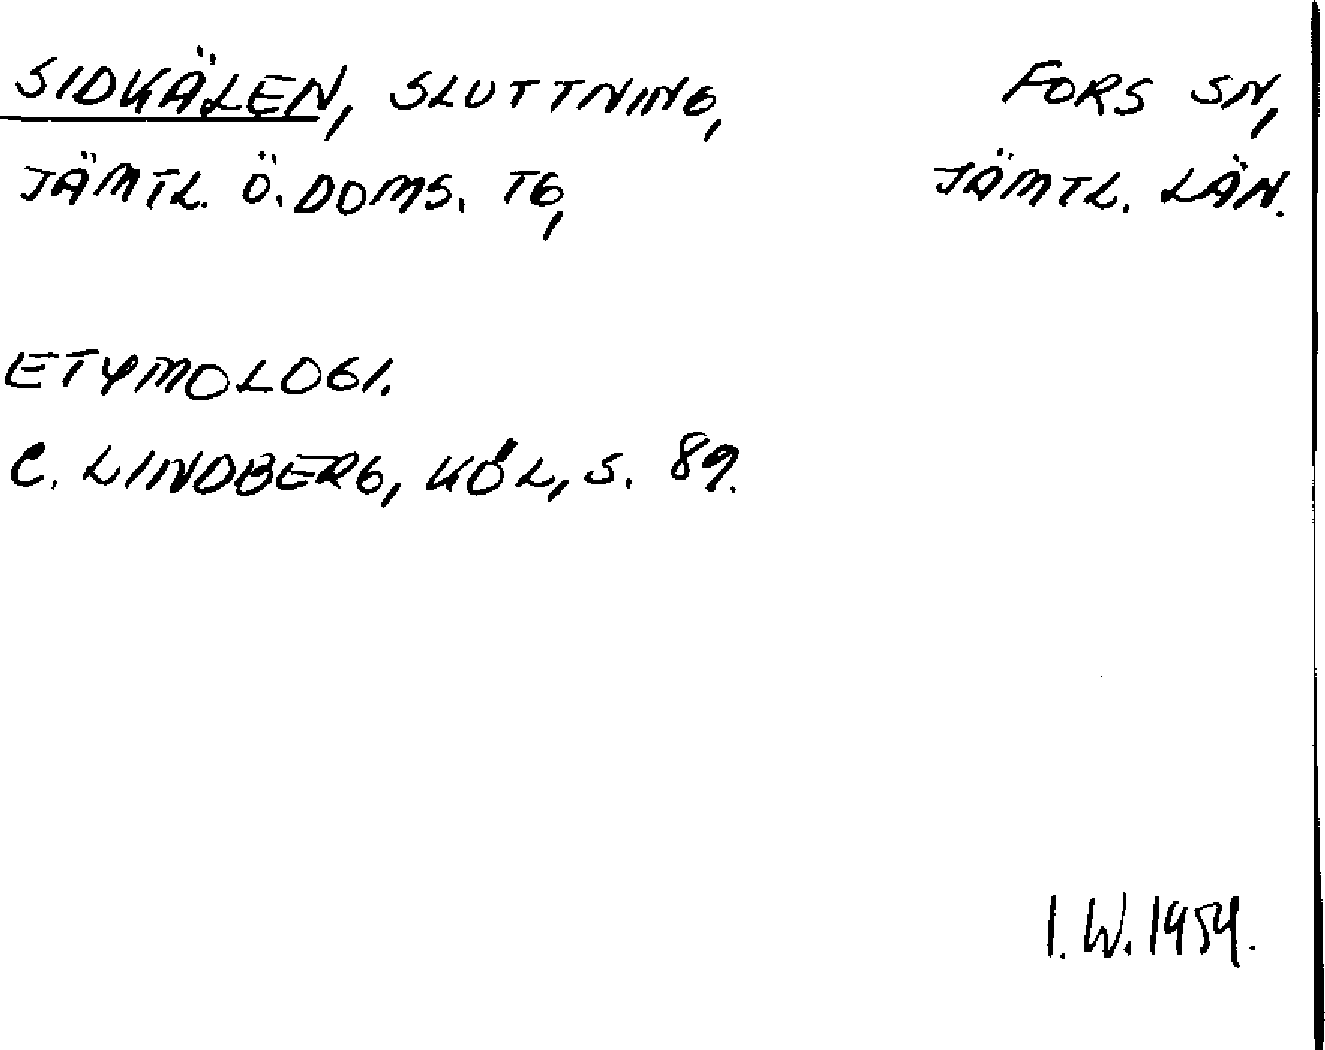 SIDKÄLEN, SLUTTNING, FORS SN,
JÄMTL. Ö. DOMS. TG, JÄMTL. LÄN.
ETYMOLOGI.
C. LINDBERG, KÖL, S. 89.
I. W. 1954.